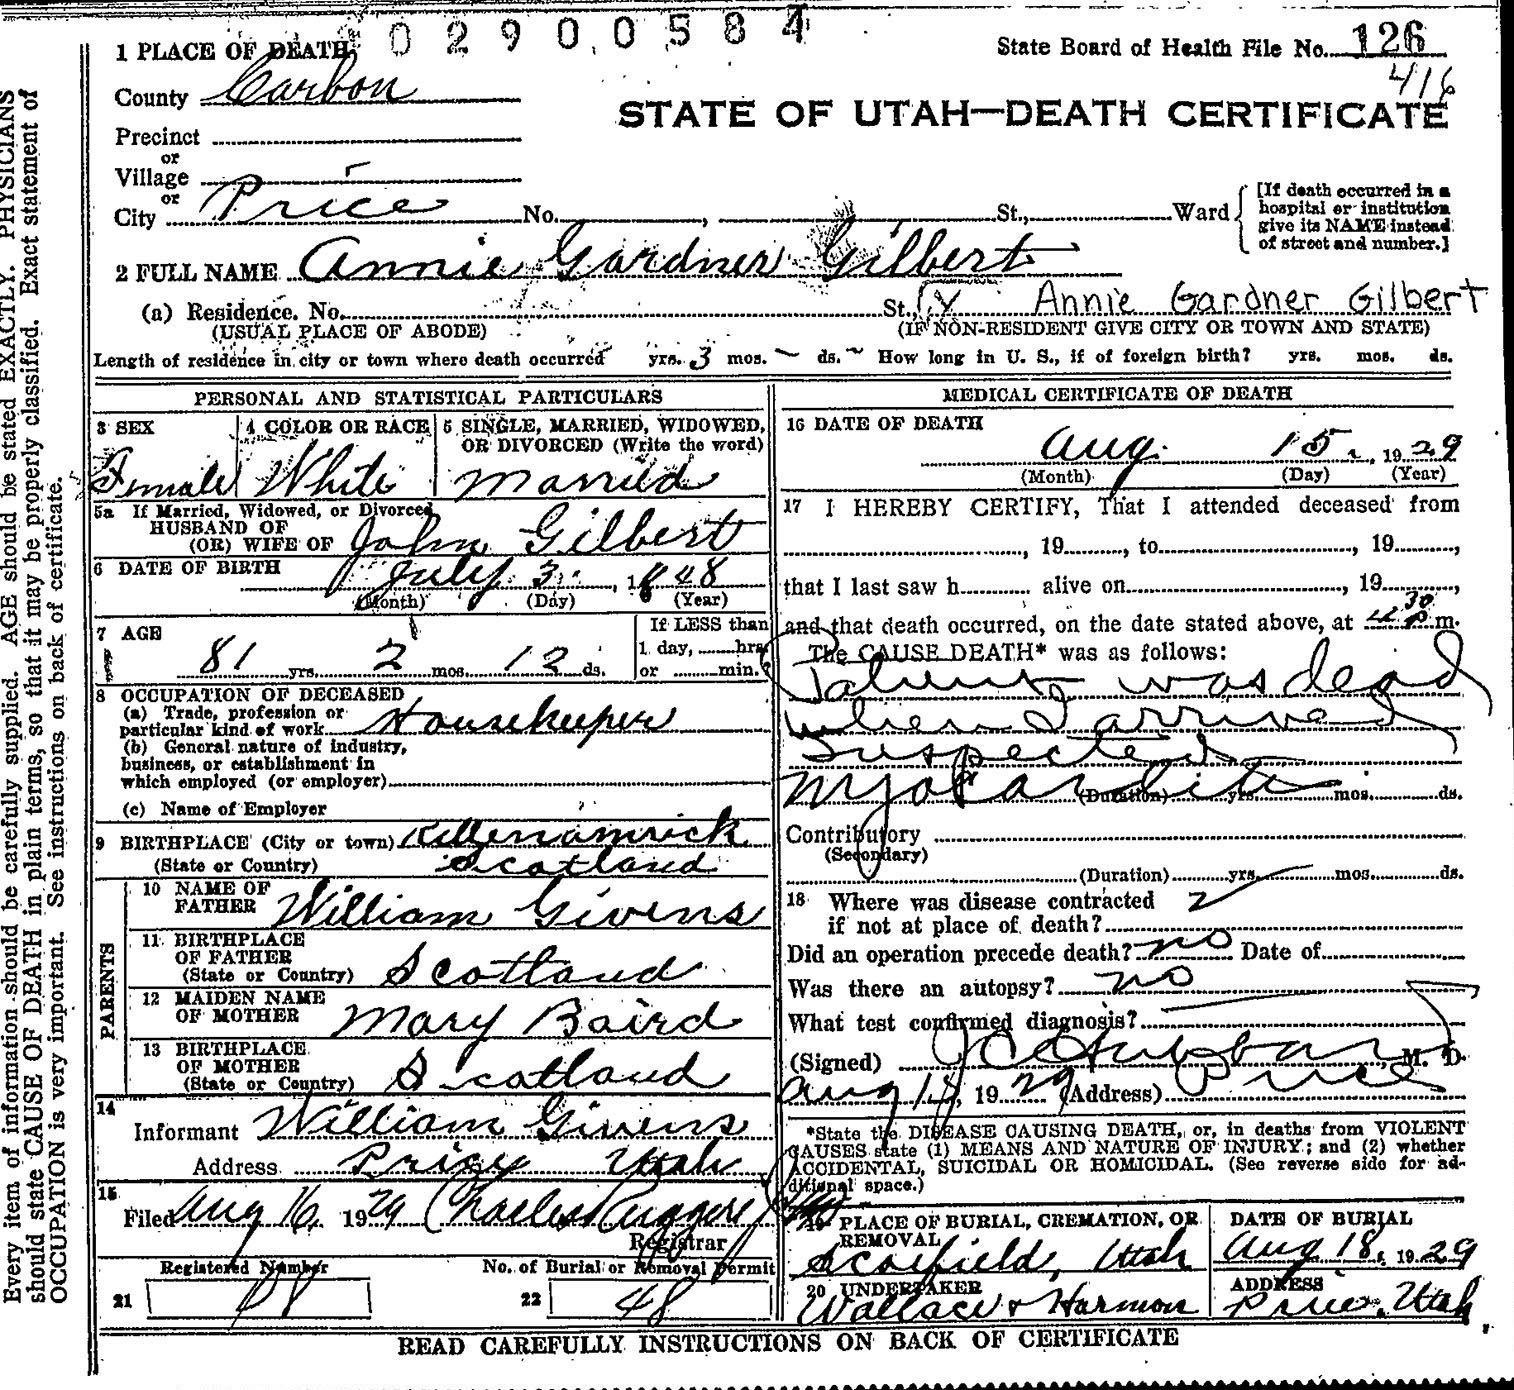 0 2 9 0 0 5 8 4
1 PLACE OF DEATH
State Board of Health File No. 126
416
County Carbon
STATE OF UTAH—DEATH CERTIFICATE
Precinct
or
Village
or
City Price No. , St., Ward
[If death occurred in a
hospital or institution
give its NAME instead
of street and number.]
2 FULL NAME Annie Gardner Gilbert
(a) Residence. No. St., Annie Gardner Gilbert
(USUAL PLACE OF ABODE) (IF NON-RESIDENT GIVE CITY OR TOWN AND STATE)
Length of residence in city or town where death occurred yrs. 3 mos. ~ ds. ~ How long in U. S., if of foreign birth? yrs. mos. ds.
PERSONAL AND STATISTICAL PARTICULARS
3 SEX 4 COLOR OR RACE 5 SINGLE, MARRIED, WIDOWED,
OR DIVORCED (Write the word)
Female White Married
5a If Married, Widowed, or Divorced
HUSBAND OF
(OR) WIFE OF John Gilbert
6 DATE OF BIRTH July 3, 1848
(Month) (Day) (Year)
7 AGE If LESS than
81 yrs. 2 mos. 12 ds. 1 day, hrs.
or min.
8 OCCUPATION OF DECEASED
(a) Trade, profession or
particular kind of work Housekeeper
(b) General nature of industry,
business, or establishment in
which employed (or employer)
(c) Name of Employer
9 BIRTHPLACE (City or town) Killenamrick
(State or Country) Scotland
PARENTS
10 NAME OF
FATHER William Givens
11 BIRTHPLACE
OF FATHER
(State or Country) Scotland
12 MAIDEN NAME
OF MOTHER Mary Baird
13 BIRTHPLACE
OF MOTHER
(State or Country) Scotland
14
Informant William Givens
Address Price Utah
15
Filed Aug 16, 1929
Registrar
Registered Number No. of Burial or Removal Permit
21 22 48
MEDICAL CERTIFICATE OF DEATH
16 DATE OF DEATH
Aug. 15, 1929
(Month) (Day) (Year)
17 I HEREBY CERTIFY, That I attended deceased from
, 19 , to , 19 ,
that I last saw h alive on , 19 ,
and that death occurred, on the date stated above, at 30 P m.
The CAUSE DEATH* was as follows:
Patient was dead
when I arrived
Suspected
Myocarditis
(Duration) yrs. mos. ds.
Contributory
(Secondary)
(Duration) yrs. mos. ds.
18 Where was disease contracted
if not at place of death?
Did an operation precede death? no Date of
Was there an autopsy? no
What test confirmed diagnosis?
(Signed) J C Hubbard, M. D.
Aug 15, 1929 (Address) Price
*State the DISEASE CAUSING DEATH, or, in deaths from VIOLENT
CAUSES state (1) MEANS AND NATURE OF INJURY; and (2) whether
ACCIDENTAL, SUICIDAL OR HOMICIDAL. (See reverse side for ad-
ditional space.)
19 PLACE OF BURIAL, CREMATION, OR
REMOVAL
Scofield, Utah
DATE OF BURIAL
Aug 18, 1929
20 UNDERTAKER
Wallace & Harmon
ADDRESS
Price, Utah
READ CAREFULLY INSTRUCTIONS ON BACK OF CERTIFICATE
Every item of information should be carefully supplied. AGE should be stated EXACTLY. PHYSICIANS
should state CAUSE OF DEATH in plain terms, so that it may be properly classified. Exact statement of
OCCUPATION is very important. See instructions on back of certificate.